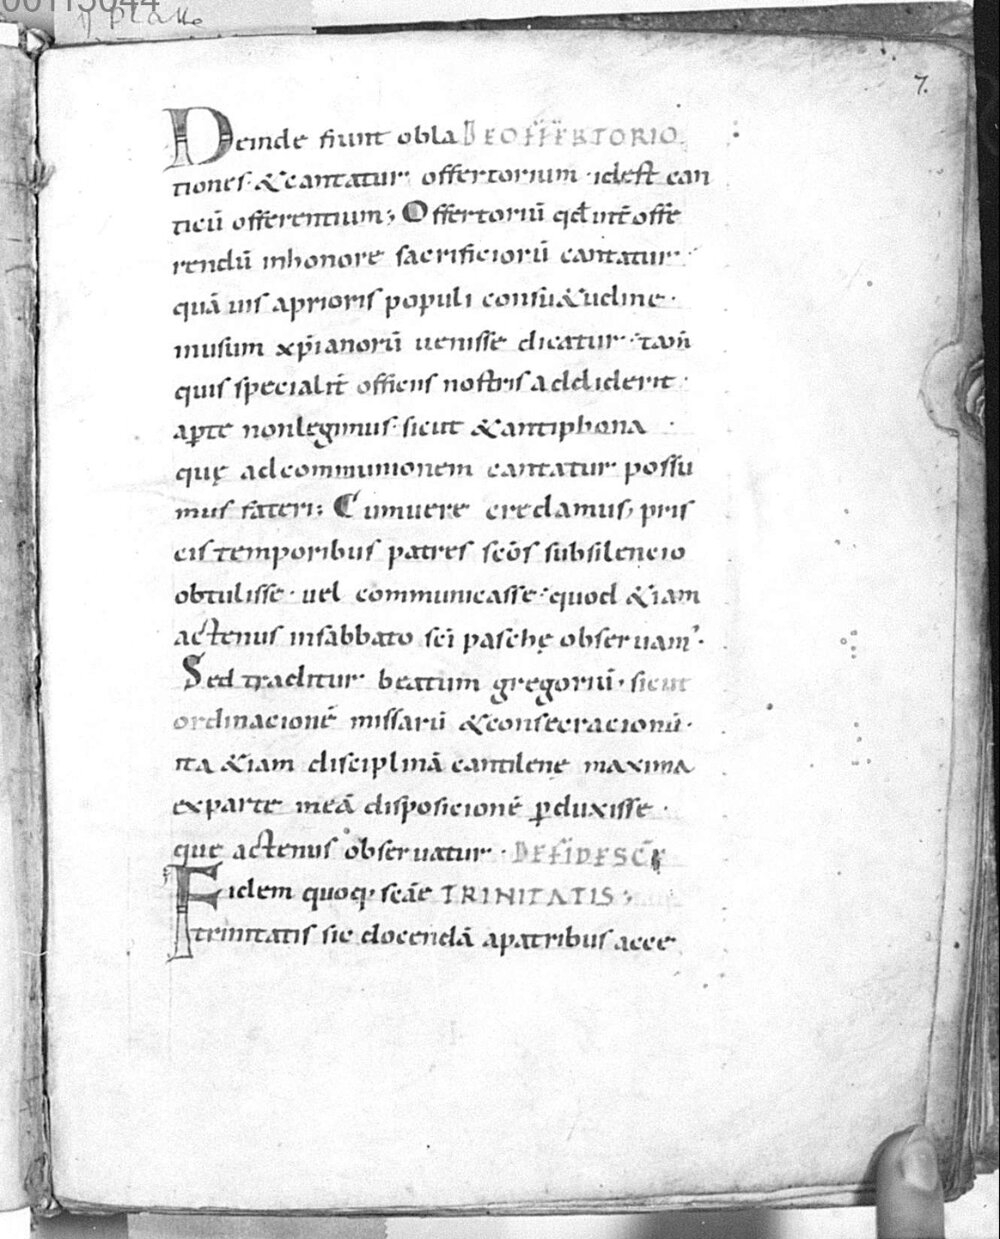 00113044
7.
Deinde fiunt obla DE OFFERTORIO
tiones· & cantatur offertorium · idest can
ticū offerentium; Offertoriū qđ int̄ offe
rendū inhonore sacrificiorū cantatur·
quā uis aprioris populi consu&udine·
inusum xp̄ianorū uenisse dicatur· tam̄
quis specialit̄ officiis nostris addiderit·
apte nonlegimus· sicut & antiphona
quę adcommunionem cantatur possu
mus fateri; Cumuere credamus, pris
cis temporibus patres sc̄ōs subsilencio
obtulisse· uel communicasse· quod &iam
actenus insabbato sc̄i paschę obseruam'·
Sed traditur beatum gregoriū· sicut
ordinacionē missarū & consecracionū·
ita &iam disciplinā cantilenę maxima
exparte ineā disposicionē ꝑduxisse·
que actenus obseruatur· DE FIDE SC̄Ę
Fidem quoq· sc̄ae TRINITATIS;
trinitatis sic docendā apatribus acce